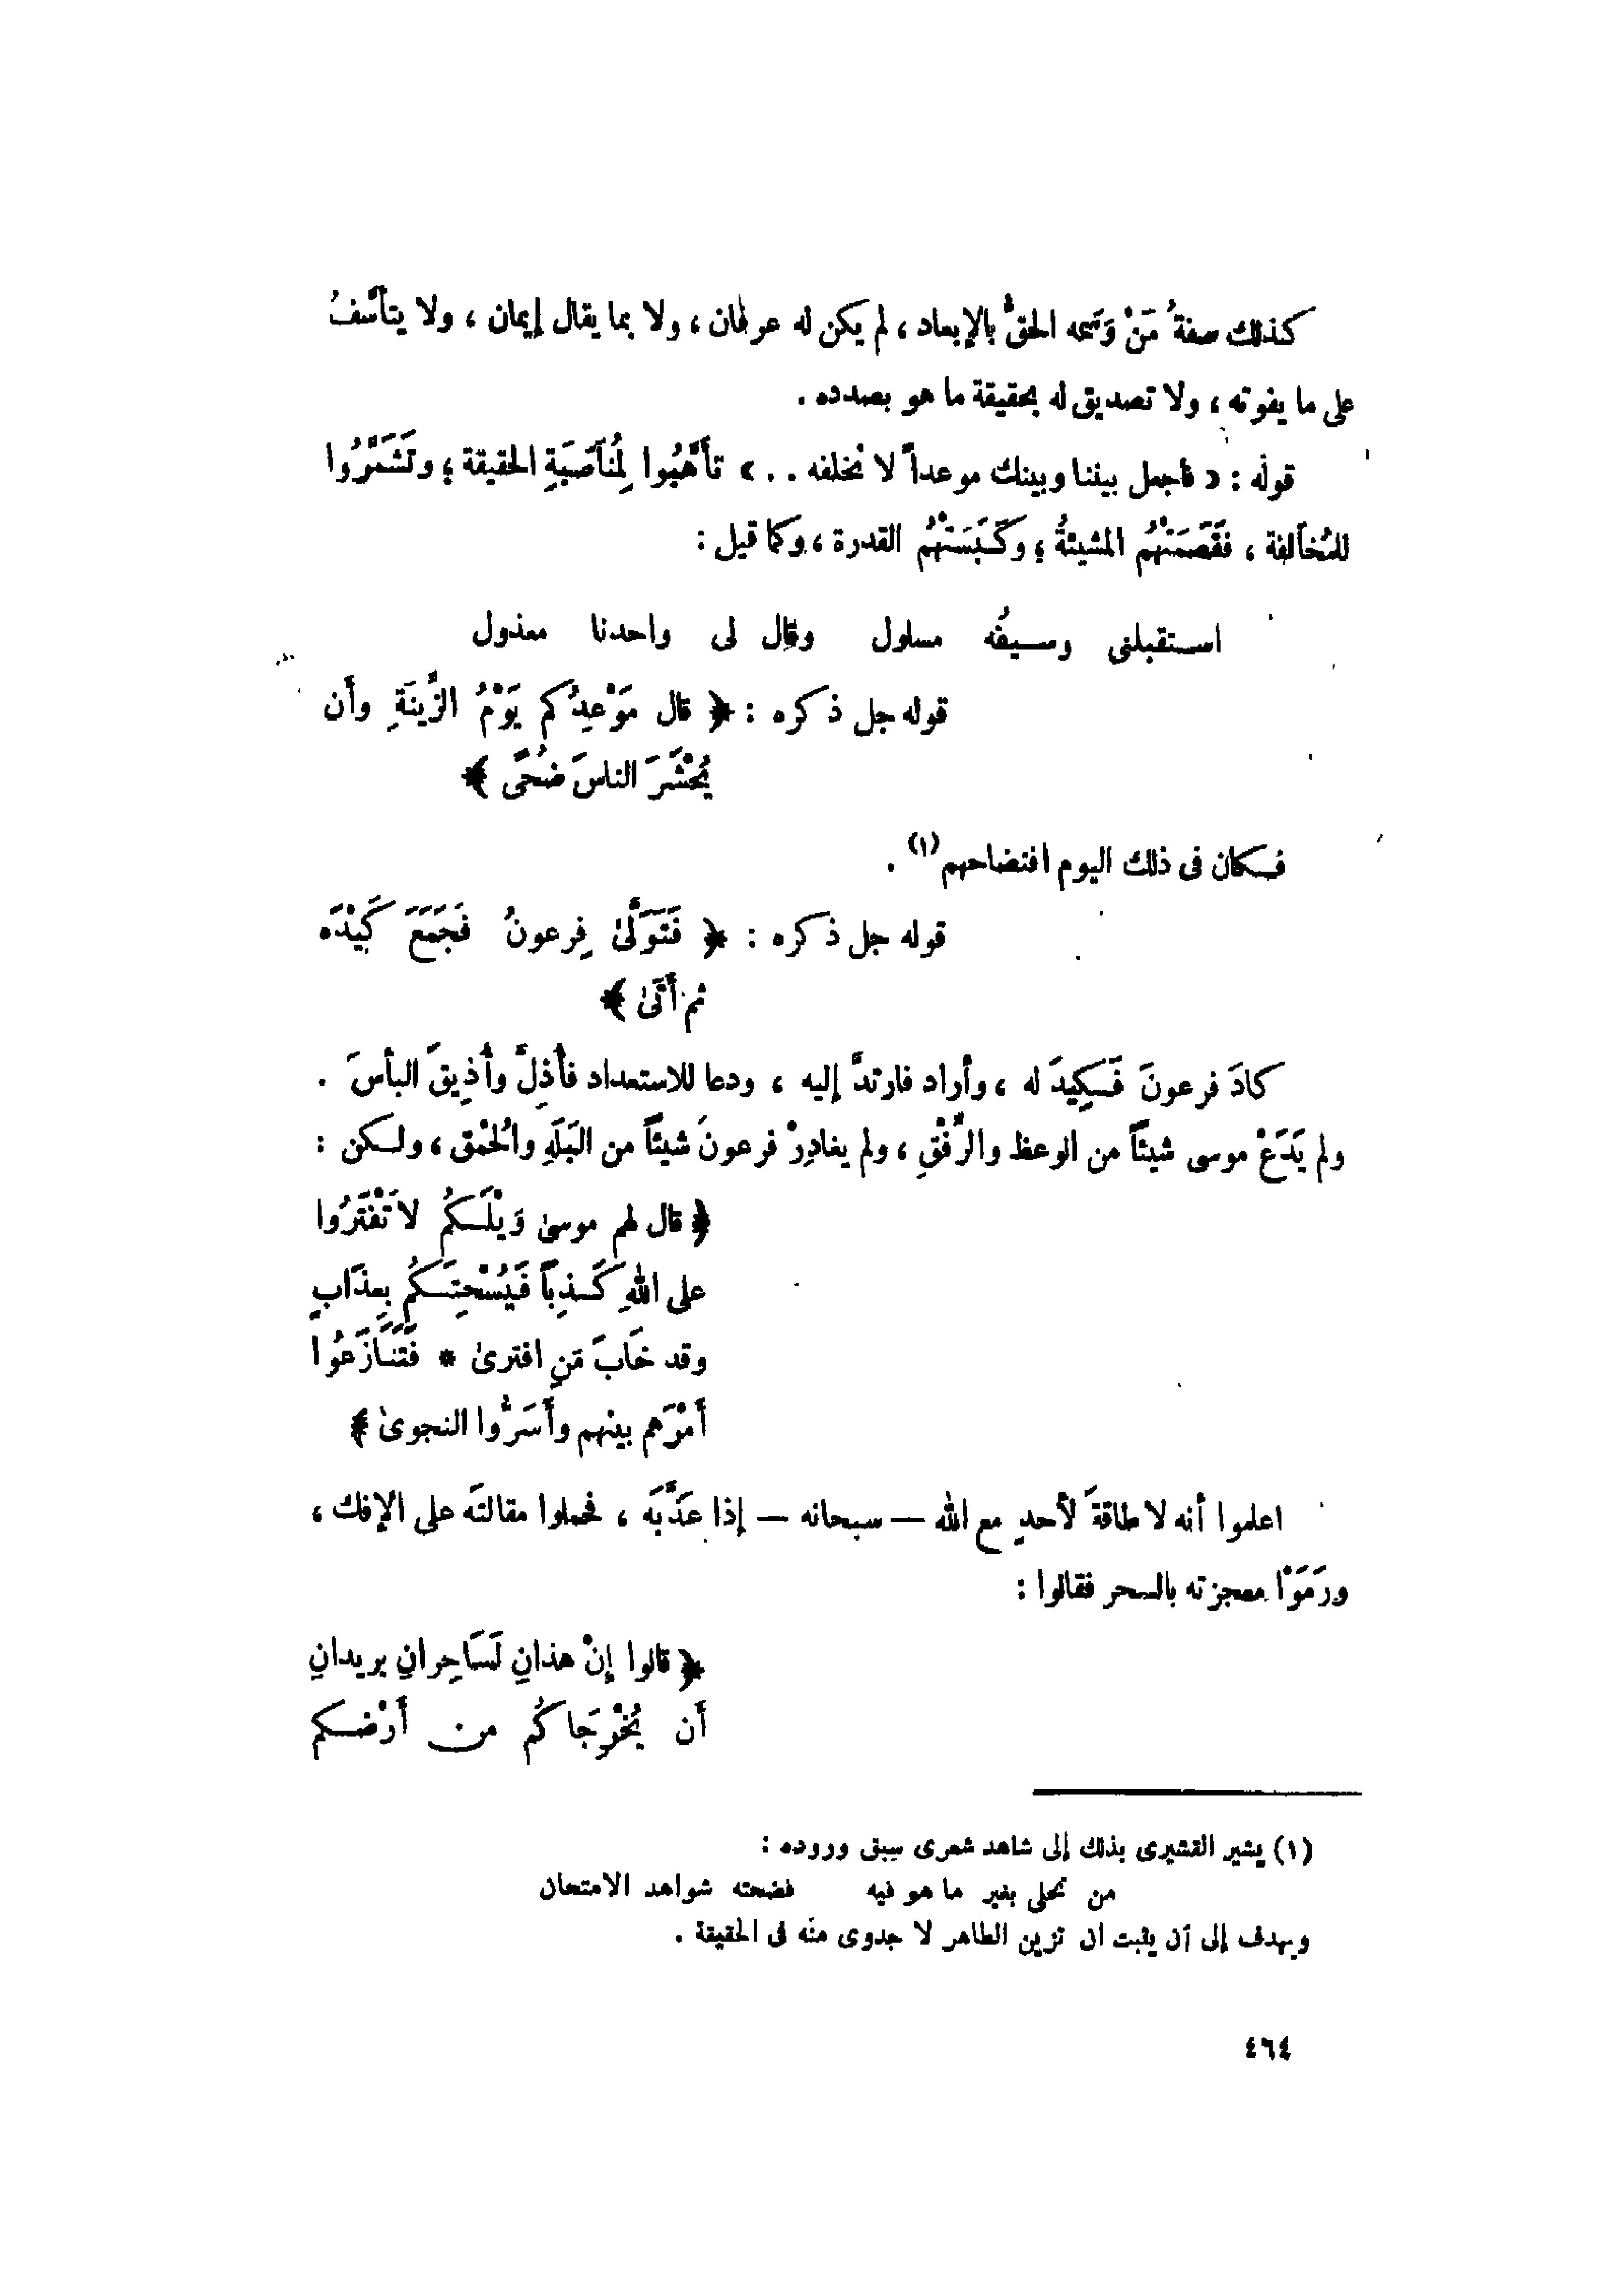 كذلك صفةُ مَنْ وَسَمَه الحقُّ بالإبعاد ، لم يكن له عرفان ، ولا بما يقال إيمان ، ولا يتأسَّفُ
على ما يفوته ، ولا تصديق له بحقيقة ما هو بصدده .
قوله : « فاجعل بيننا وبينك موعداً لا نُخلفه . . » تأهَّبُوا لِمُنَاصَبَةِ الحقيقة ؛ وتَشَمَّرُوا
للمُخالفة ، فقَصَمَتْهُم المشيئةُ ؛ وكَبَسَتْهُم القدرة ، وكما قيل :
استقبلنى وسيفُه مسلول وقال لى واحدنا معذول
قوله جل ذكره : ﴿ قال مَوْعِدُكم يَوْمُ الزِّينَةِ وأَن
يُحْشَرَ الناسَ ضُحًى ﴾
فكان فى ذلك اليوم افتضاحهم (١) .
قوله جل ذكره : ﴿ فَتَوَلَّىٰ فِرعونُ فَجَمَعَ كَيْدَه
ثم أَتَىٰ ﴾
كادَ فرعونَ فَكِيدَ له ، وأراد فارتدَّ إليه ، ودعا للاستعداد فأُذِلَّ وأُذِيقَ البأسَ .
ولم يَدَعْ موسى شيئاً من الوعظ والرِّفْقِ ، ولم يغادِرْ فرعونَ شيئاً من البَلَهِ والحُمْق ، ولكن :
﴿ قال لهم موسىٰ وَيْلَكُم لا تَفْتَرُوا
على اللهِ كَذِباً فَيُسْحِتَكُم بِعذَابٍ
وقد خَابَ مَنِ افترىٰ * فَتَنَازَعُوا
أَمْرَهم بينهم وأَسَرُّوا النجوىٰ ﴾
اعلموا أنه لا طاقةَ لأحدٍ مع الله — سبحانه — إذا عَذَّبَه ، فحملوا مقالتَه على الإفك ،
ورَمَوْا معجزته بالسحر فقالوا :
﴿ قالوا إِنْ هذانِ لَسَاحِرانِ يريدانِ
أن يُخْرِجَاكُم من أَرْضكم
(١) يشير القشيرى بذلك إلى شاهد شعرى سبق وروده :
من تحلى بغير ما هو فيه فضحته شواهد الامتحان
ويهدف إلى أن يثبت ان تزين الظاهر لا جدوى منه فى الحقيقة .
٤٦٤